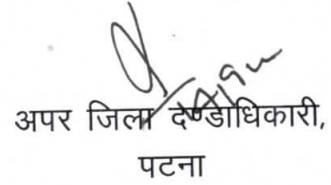 अपर जिला दण्डाधिकारी,
पटना